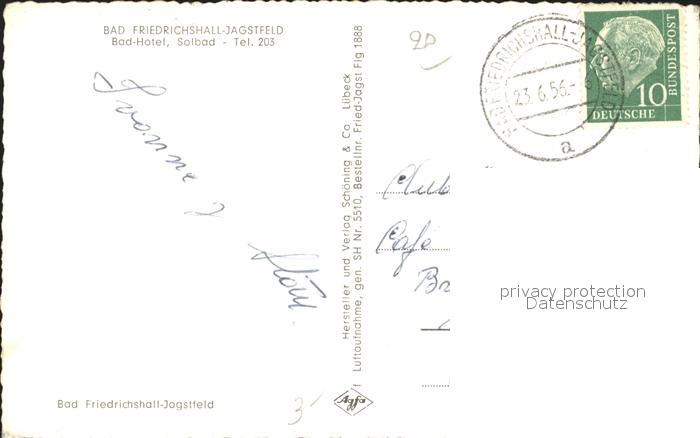 BAD FRIEDRICHSHALL-JAGSTFELD
Bad-Hotel, Solbad - Tel. 203
Yvonne
Bad Friedrichshall-Jagstfeld
Hersteller und Verlag Schöning & Co. Lübeck
Luftaufnahme, gen. SH Nr. 5510, Bestellnr. Fried-Jagst Flg 1888
Agfa
20
3
BAD FRIEDRICHSHALL-JAGSTFELD
23.6.56.
a
10
DEUTSCHE
BUNDESPOST
Café
privacy protection
Datenschutz